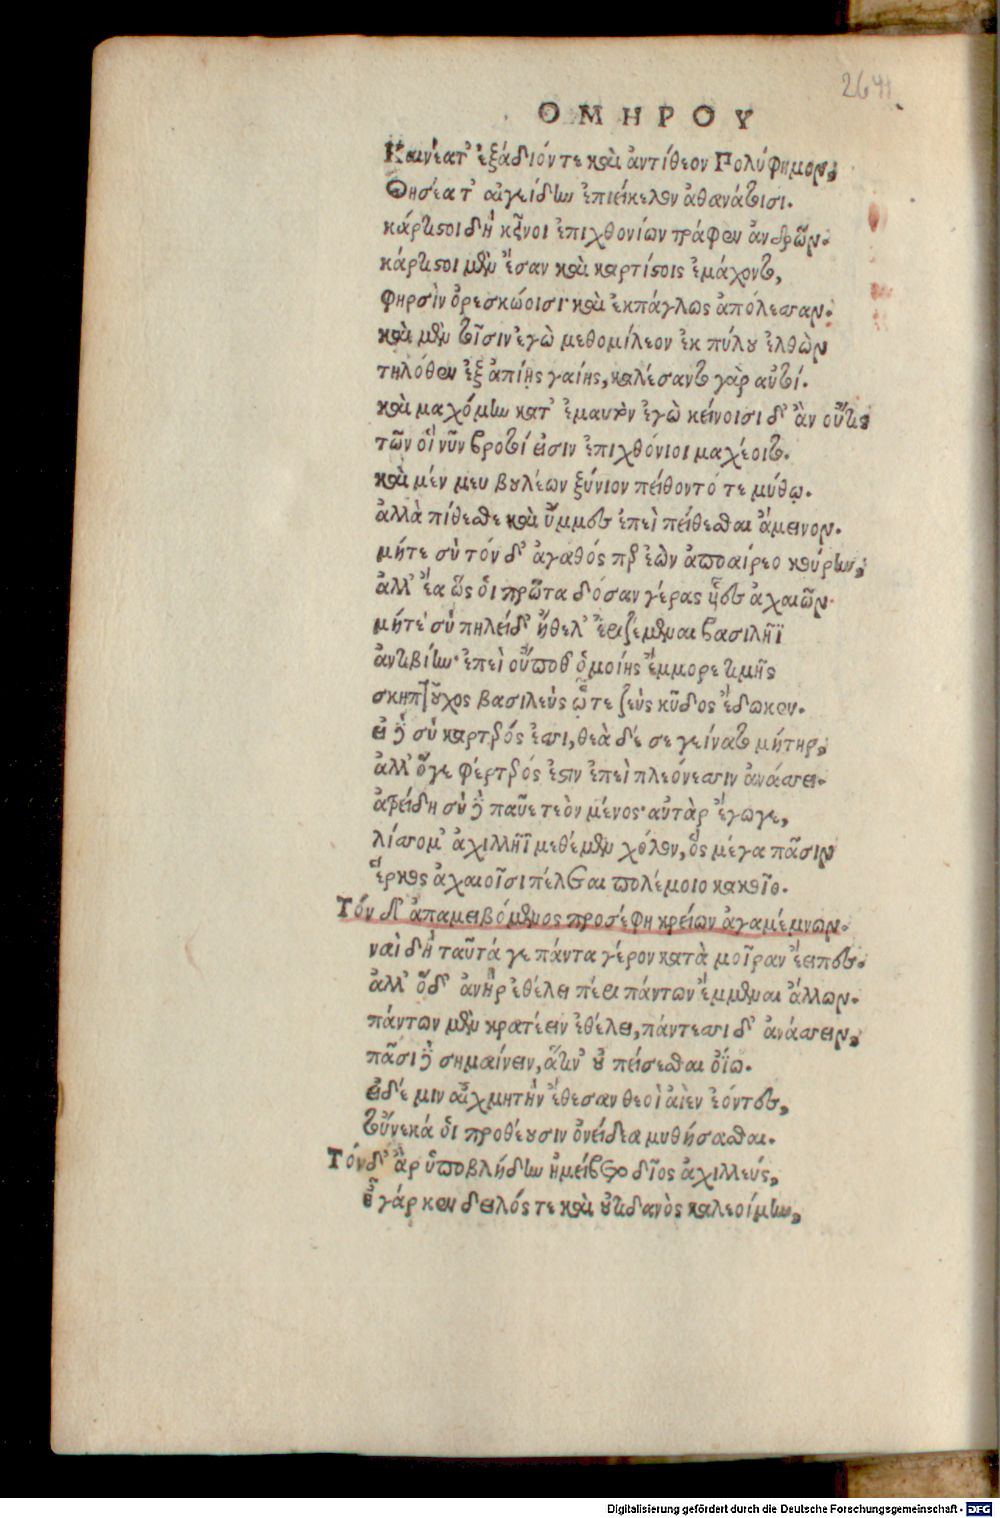 2641
ΟΜΗΡΟΥ
Καινέατ' ἐξάδιόν τε καὶ ἀντίθεον Πολύφημον,
Θησέα τ' αἰγείδην ἐπιείκελον ἀθανάτοισι.
κάρτιστοι δὴ κεῖνοι ἐπιχθονίων τράφεν ἀνδρῶν.
κάρτιστοι μὲν ἔσαν καὶ καρτίστοις ἐμάχοντο,
φηρσὶν ὀρεσκώοισι· καὶ ἐκπάγλως ἀπόλεσσαν.
καὶ μὲν τοῖσιν ἐγὼ μεθομίλεον ἐκ πύλου ἐλθὼν
τηλόθεν ἐξ ἀπίης γαίης, καλέσαντο γὰρ αὐτοί.
καὶ μαχόμην κατ' ἐμαυτὸν ἐγὼ κείνοισι δ' ἂν οὔτις
τῶν οἳ νῦν βροτοί εἰσιν ἐπιχθόνιοι μαχέοιτο.
καὶ μέν μευ βουλέων ξύνιον πείθοντό τε μύθῳ.
ἀλλὰ πίθεσθε καὶ ὔμμες ἐπεὶ πείθεσθαι ἄμεινον.
μήτε σὺ τόνδ' ἀγαθός περ ἐὼν ἀποαίρεο κούρην,
ἀλλ' ἔα ὥς οἱ πρῶτα δόσαν γέρας υἷες ἀχαιῶν.
μήτε σὺ πηλείδ' ἤθελ' ἐριζέμεναι βασιλῆϊ
ἀντιβίην· ἐπεὶ οὔποθ' ὁμοίης ἔμμορε τιμῆς
σκηπτοῦχος βασιλεὺς ᾧτε ζεὺς κῦδος ἔδωκεν.
εἰ δὲ σὺ καρτερός ἐσσι, θεὰ δέ σε γείνατο μήτηρ,
ἀλλ' ὅγε φέρτερός ἐστιν ἐπεὶ πλεόνεσσιν ἀνάσσει.
ἀτρείδη σὺ δὲ παῦε τεὸν μένος· αὐτὰρ ἔγωγε,
λίσσομ' ἀχιλλῆϊ μεθέμεν χόλον, ὃς μέγα πᾶσιν
ἕρκος ἀχαιοῖσι πέλεται πολέμοιο κακοῖο.
Τόν δ' ἀπαμειβόμενος προσέφη κρείων ἀγαμέμνων.
ναὶ δὴ ταῦτά γε πάντα γέρον κατὰ μοῖραν ἔειπες.
ἀλλ' ὅδ' ἀνὴρ ἐθέλει περὶ πάντων ἔμμεναι ἄλλων.
πάντων μὲν κρατέειν ἐθέλει, πάντεσσι δ' ἀνάσσειν,
πᾶσι δὲ σημαίνειν, ἅτιν' οὐ πείσεσθαι ὀΐω.
εἰ δέ μιν αἰχμητὴν ἔθεσαν θεοὶ αἰὲν ἐόντες,
τοὔνεκά οἱ προθέουσιν ὀνείδεα μυθήσασθαι.
Τόν δ' ἄρ ὑποβλήδην ἠμείβετο δῖος ἀχιλλεύς,
ἦ γάρ κεν δειλός τε καὶ οὐτιδανὸς καλεοίμην,
Digitalisierung gefördert durch die Deutsche Forschungsgemeinschaft - DFG